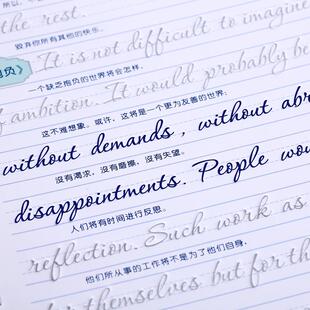 所以,
the rest.
毁弃你所有其他的快乐。
It is not difficult to imagine
抱负》
一个缺乏抱负的世界将会怎样。
of ambition. It would probably be
这不难想象。或许,这将是一个更为友善的世界:
without demands, without abr
沒有渴求,沒有磨擦,沒有失望。
disappointments. People wou
人们将有时间进行反思。
reflection. Such work as
他们所从事的工作将不是为了他们自身,
themselves but for th